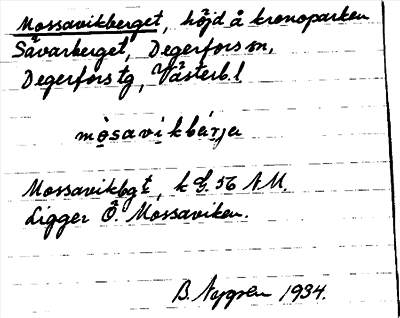 Mossavikberget, höjd å kronoparken
Sävarberget, Degerfors sn,
Degerfors tg, Västerb. l
mòsavikbærja
Mossavikbgt, k G. 56 NM.
Ligger Ö. Mossaviken.
B. Nygren 1934.